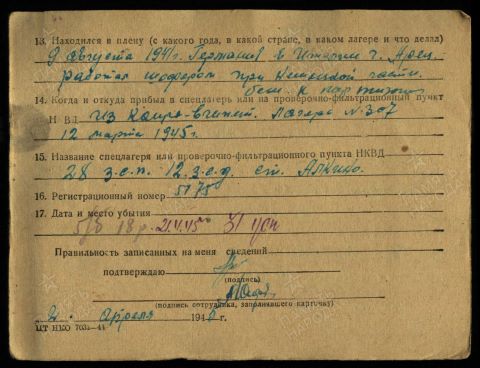 13. Находился в плену (с какого года, в какой стране, в каком лагере и что делал)
9 августа 1941 г. Германия в Италии г. Арец.
работал шофером при Немецкой части.
беж. к партизан
14. Когда и откуда прибыл в спецлагерь или на проверочно-фильтрационный пункт
НКВД Из Каира-Египет. Лагерь N. 307
12 марта 1945 г.
15. Название спецлагеря или проверочно-фильтрационного пункта НКВД
28 з.с.п. 12. з.с.д. ст. Алкино.
16. Регистрационный номер 5175
17. Дата и место убытия
21.V.45
Правильность записанных на меня сведений
подтверждаю
(подпись)
(подпись сотрудника, заполнявшего карточку)
2. апреля 1945 г.
ЦТ НКО 703а-44